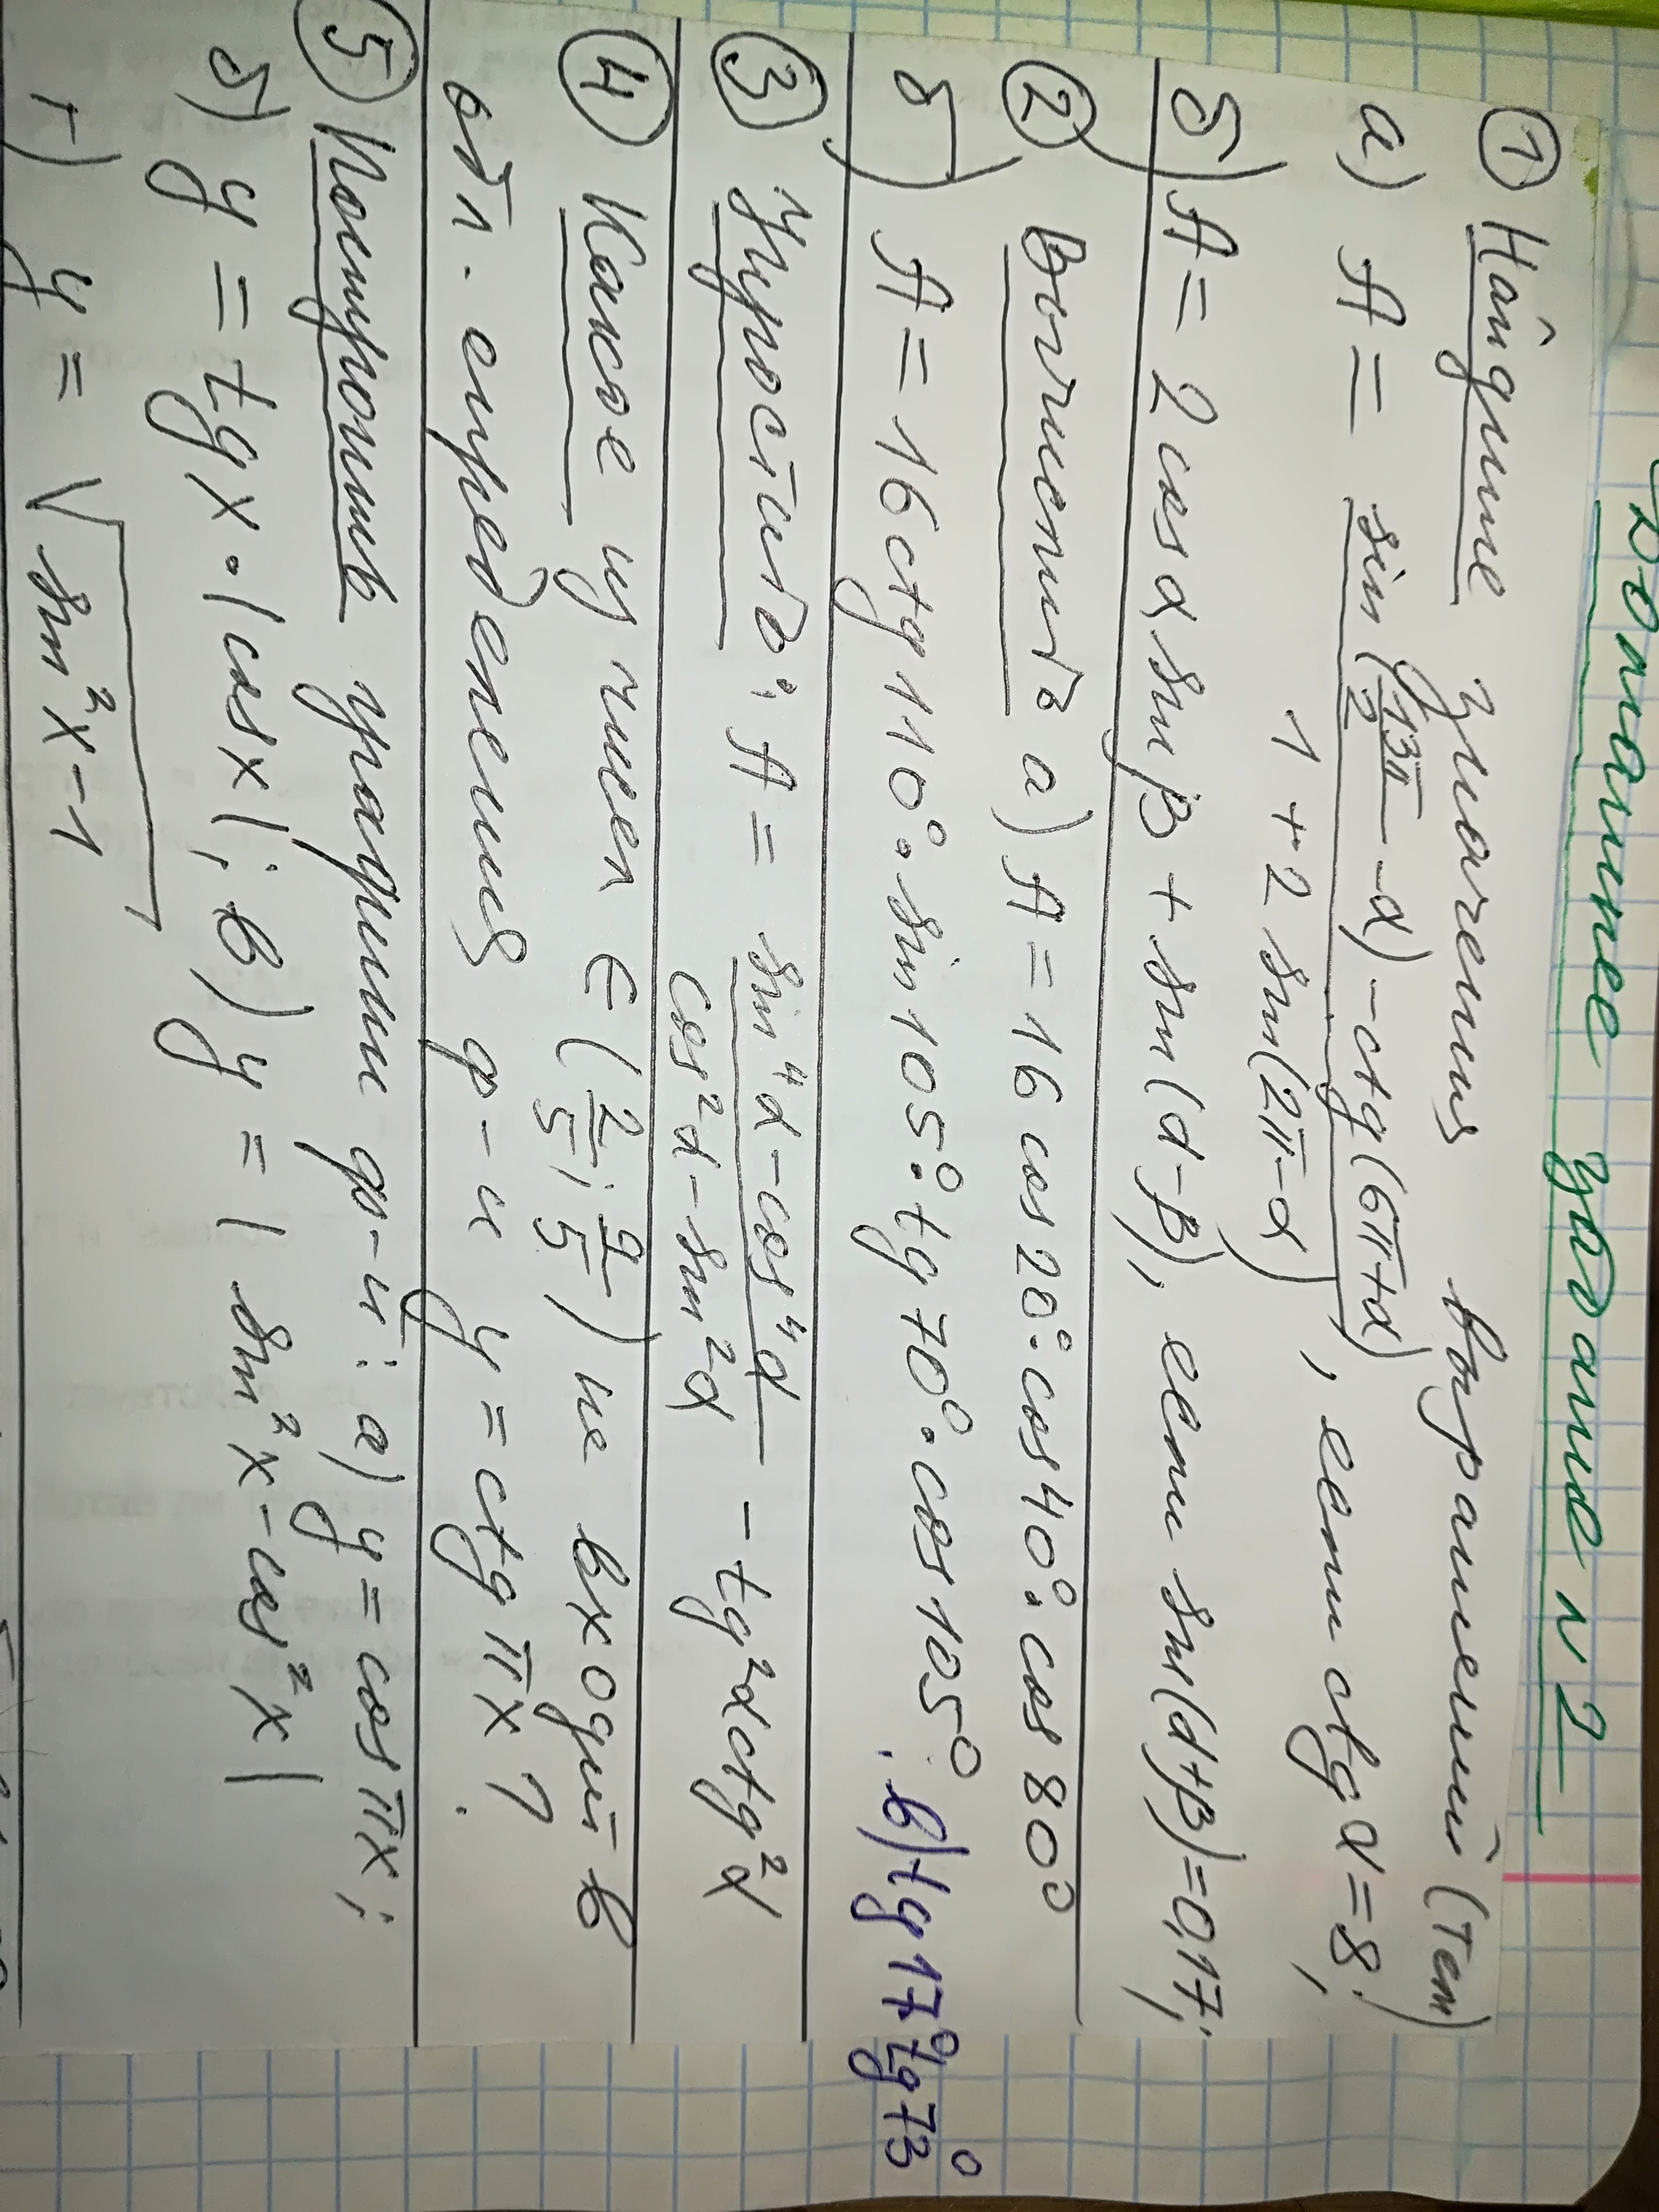 Домашнее задание N 2
① Найдите значения выражений (Тест)
а) A = sin(13π/2 - α) - ctg(6π + α) / 1 + 2 sin(2π - α), если ctg α = 8;
б) A = 2 cos α sin β + sin(α - β), если sin(α + β) = 0,17;
② Вычислить а) A = 16 cos 20°·cos 40°·cos 80°
б) A = 16 ctg 110°·sin 105°·tg 70°·cos 105°. в) tg 17° tg 73°
③ Упростить: A = sin⁴α - cos⁴α / cos²α - sin²α - tg²α ctg²α
④ Какое из чисел ∈ (2/5; 9/5) не входит в
обл. определения ф-и y = ctg πx?
⑤ Построить графики ф-й: а) y = cos πx;
б) y = tg x·|cos x|; в) y = | sin²x - cos²x |
г) y = √(sin²x - 1)